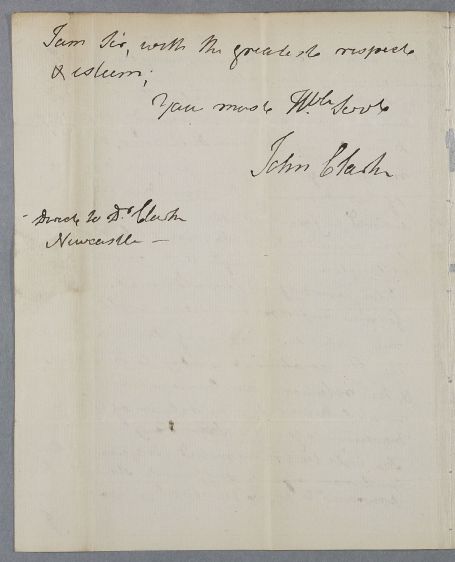 I am Sir, with the greatest respect
& esteem;
Your most Hble Servt
John Clark
Direct to Dr. Clark
Newcastle —